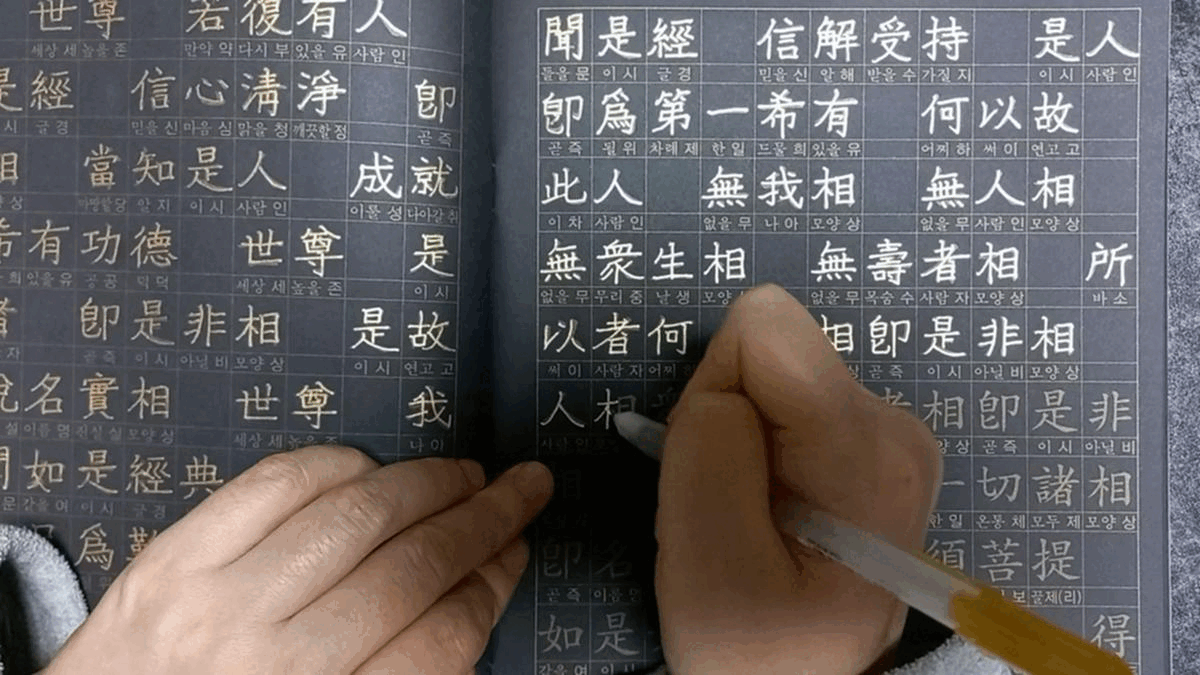 世尊 若復有人
세상 세 높을 존 만약 약 다시 부 있을 유 사람 인
是經 信心淸淨 卽
이 시 글 경 믿을 신 마음 심 맑을 청 깨끗할 정 곧 즉
相 當知是人 成就
마땅할 당 알 지 이 시 사람 인 이룰 성 나아갈 취
希有功德 世尊 是
있을 유 공 공 덕 덕 세상 세 높을 존 이 시
者 卽是非相 是故
자 곧 즉 이 시 아닐 비 모양 상 이 시 연고 고
說名實相 世尊 我
설 이름 명 진실 실 모양 상 세상 세 높을 존 나 아
聞如是經典
문 같을 여 이 시 글 경
爲難
聞是經 信解受持 是人
들을 문 이 시 글 경 믿을 신 알 해 받을 수 가질 지 이 시 사람 인
卽爲第一希有 何以故
곧 즉 될 위 차례 제 한 일 드물 희 있을 유 어찌 하 써 이 연고 고
此人 無我相 無人相
이 차 사람 인 없을 무 나 아 모양 상 없을 무 사람 인 모양 상
無衆生相 無壽者相 所
없을 무 무리 중 날 생 모양 없을 무 목숨 수 사람 자 모양 상 바 소
以者何 相卽是非相
써 이 사람 자 어찌 하 상 곧 즉 이 시 아닐 비 모양 상
人相 者相卽是非
사람 인 모양 상 곧 즉 이 시 아닐 비
相 一切諸相
한 일 온통 체 모두 제 모양 상
卽名 須菩提
곧 즉 이름 명 보 끌제(리)
如是 得
같을 여 이 시